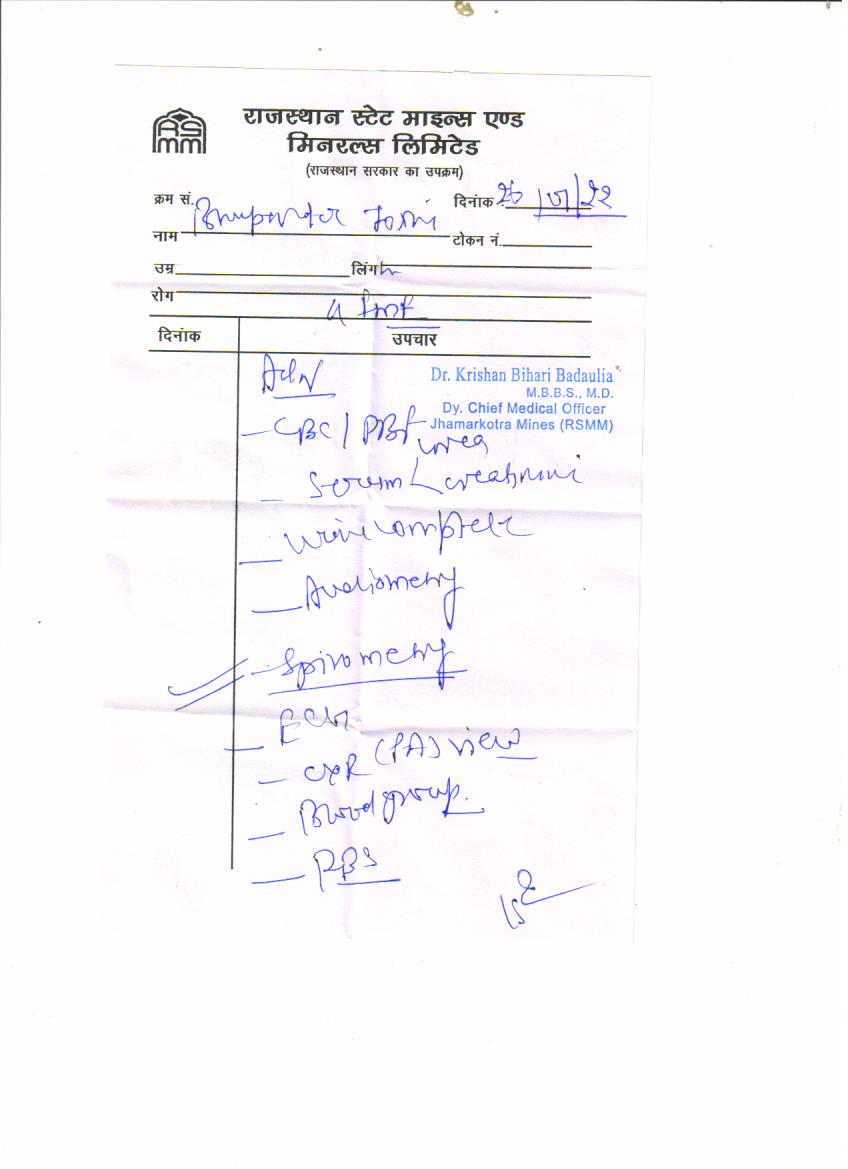 RSMM
राजस्थान स्टेट माइन्स एण्ड
मिनरल्स लिमिटेड
(राजस्थान सरकार का उपक्रम)
क्रम सं. दिनांक
नाम टोकन नं.
उम्र लिंग
रोग
दिनांक उपचार
Adv
Dr. Krishan Bihari Badaulia
M.B.B.S., M.D.
Dy. Chief Medical Officer
Jhamarkotra Mines (RSMM)
- CBC / PBF
urea
- Serum creatinini
- Urine complete
- Audiometry
- Spirometry
- ECG
- CXR (PA) view
- Blood group.
- RBS